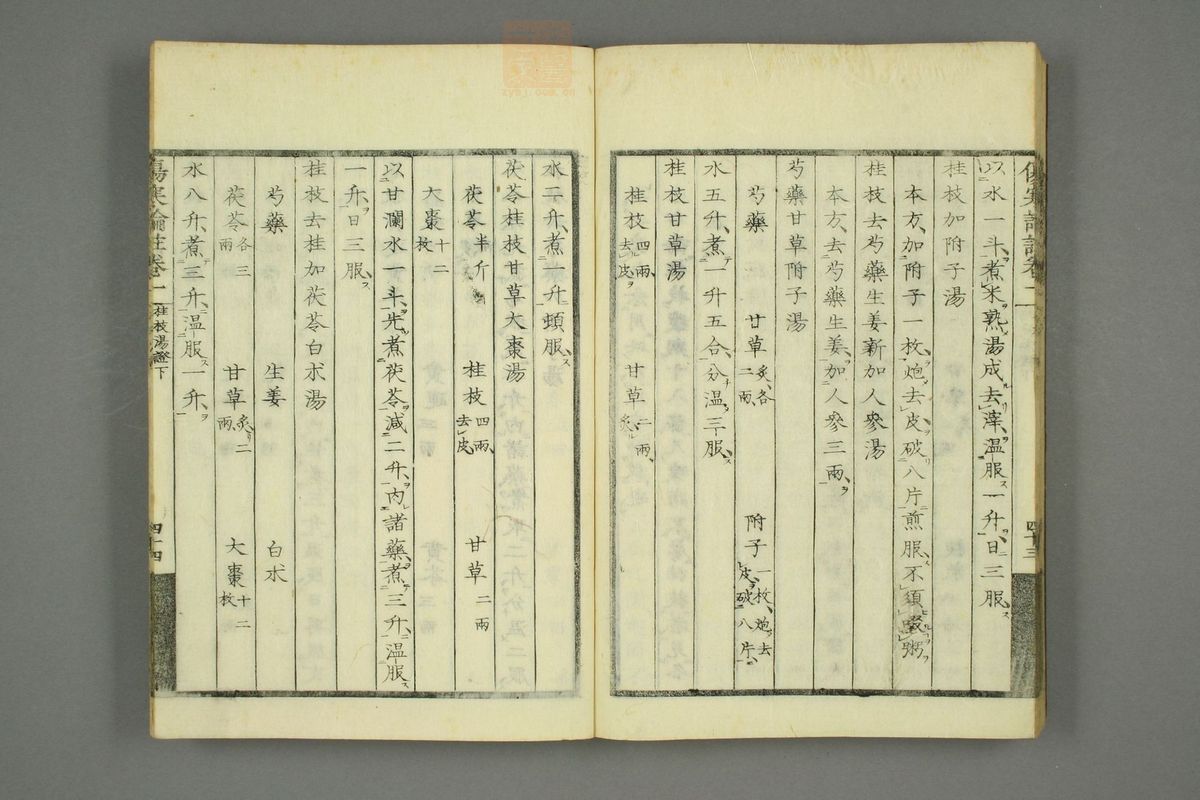 以水一斗煮米熟湯成去滓溫服一升日三服
桂枝加附子湯
本方加附子一枚炮去皮破八片煎服不須啜粥
桂枝去芍藥生姜新加人參湯
本方去芍藥生姜加人參三兩
芍藥甘草附子湯
芍藥 甘草炙各二兩 附子一枚炮去皮破八片
水五升煮一升五合分溫三服
桂枝甘草湯
桂枝四兩去皮 甘草二兩炙
四十三
水三升煮一升頓服
茯苓桂枝甘草大棗湯
茯苓半斤 桂枝四兩去皮 甘草二兩
大棗十二枚
以甘瀾水一斗先煮茯苓減二升內諸藥煮三升溫服
一升日三服
桂枝去桂加茯苓白朮湯
芍藥 生姜 白朮
茯苓各三兩 甘草炙二兩 大棗十二枚
水八升煮三升溫服一升
傷寒論註卷二 桂枝湯證下 四十四